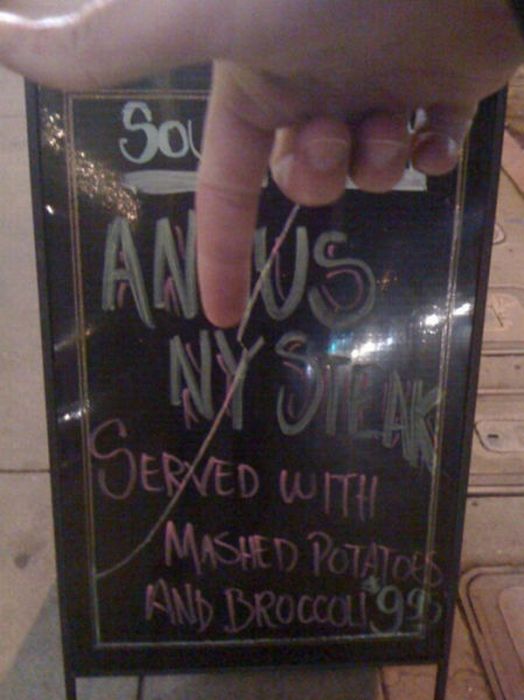 ANGUS
NY STEAK
SERVED WITH
MASHED POTATOES
AND BROCCOLI $9.95